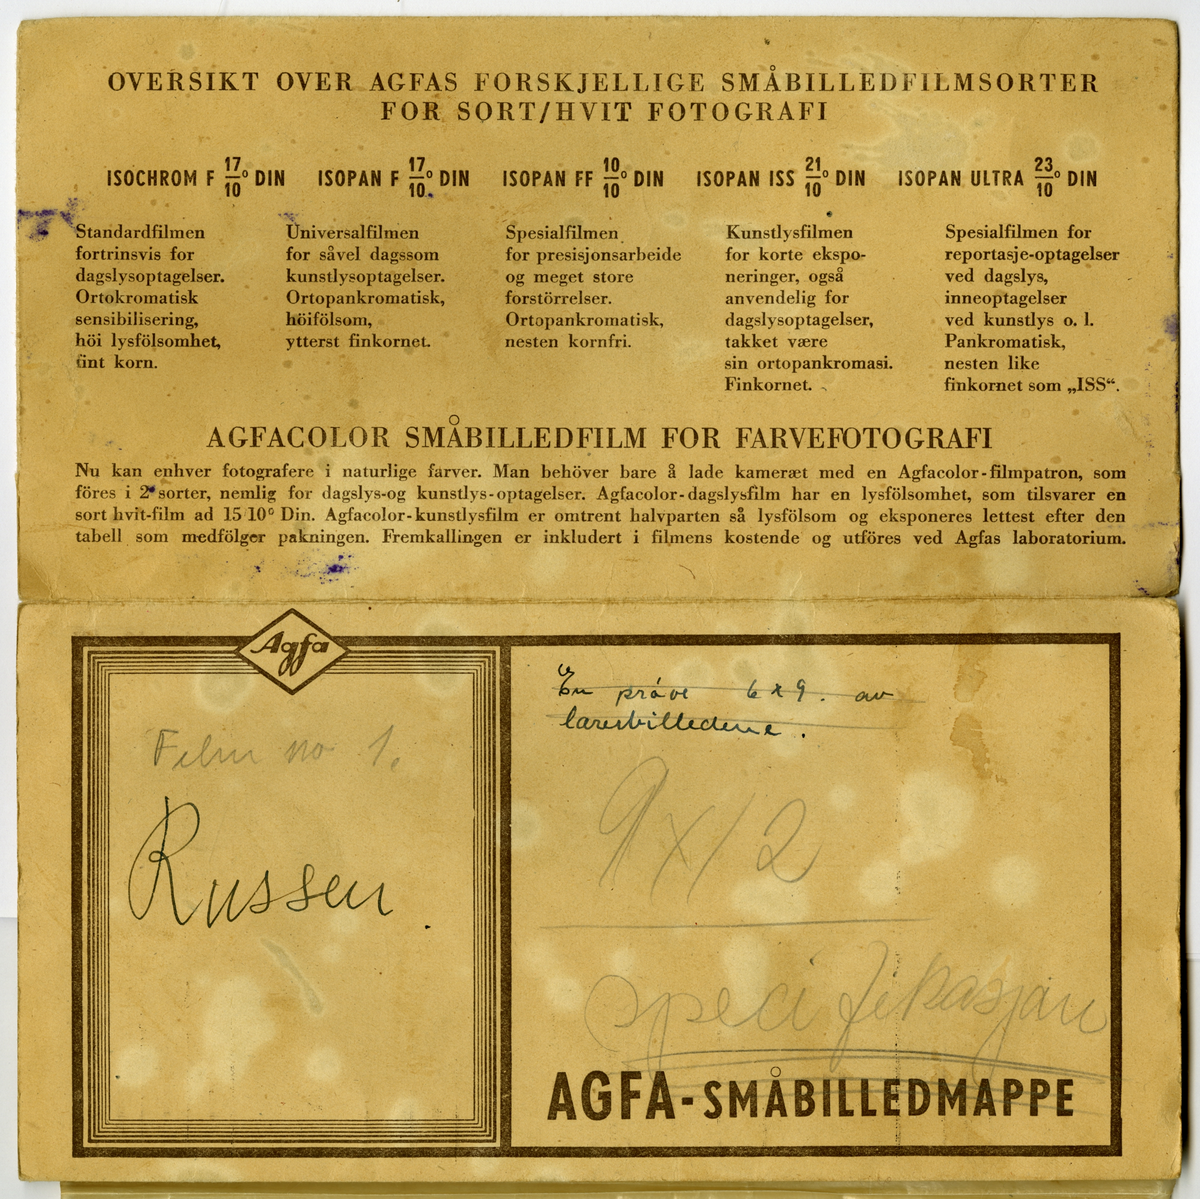 OVERSIKT OVER AGFAS FORSKJELLIGE SMÅBILLEDFILMSORTER
FOR SORT/HVIT FOTOGRAFI
ISOCHROM F 17/10° DIN
Standardfilmen
fortrinsvis for
dagslysoptagelser.
Ortokromatisk
sensibilisering,
höi lysfölsomhet,
fint korn.
ISOPAN F 17/10° DIN
Universalfilmen
for såvel dagssom
kunstlysoptagelser.
Ortopankromatisk,
höifölsom,
ytterst finkornet.
ISOPAN FF 10/10° DIN
Spesialfilmen
for presisjonsarbeide
og meget store
forstörrelser.
Ortopankromatisk,
nesten kornfri.
ISOPAN ISS 21/10° DIN
Kunstlysfilmen
for korte ekspo-
neringer, også
anvendelig for
dagslysoptagelser,
takket være
sin ortopankromasi.
Finkornet.
ISOPAN ULTRA 23/10° DIN
Spesialfilmen for
reportasje-optagelser
ved dagslys,
inneoptagelser
ved kunstlys o. l.
Pankromatisk,
nesten like
finkornet som „ISS“.
AGFACOLOR SMÅBILLEDFILM FOR FARVEFOTOGRAFI
Nu kan enhver fotografere i naturlige farver. Man behöver bare å lade kameræt med en Agfacolor-filmpatron, som
föres i 2 sorter, nemlig for dagslys-og kunstlys-optagelser. Agfacolor-dagslysfilm har en lysfölsomhet, som tilsvarer en
sort hvit-film ad 15 10° Din. Agfacolor-kunstlysfilm er omtrent halvparten så lysfölsom og eksponeres lettest efter den
tabell som medfölger pakningen. Fremkallingen er inkludert i filmens kostende og utföres ved Agfas laboratorium.
Agfa
Film no 1.
Russen.
En pröve 6x9. av
laresbilledene.
9x12
specifikasjon
AGFA-SMÅBILLEDMAPPE